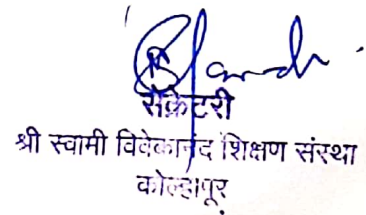 सेक्रेटरी
श्री स्वामी विवेकानंद शिक्षण संस्था
कोल्हापूर